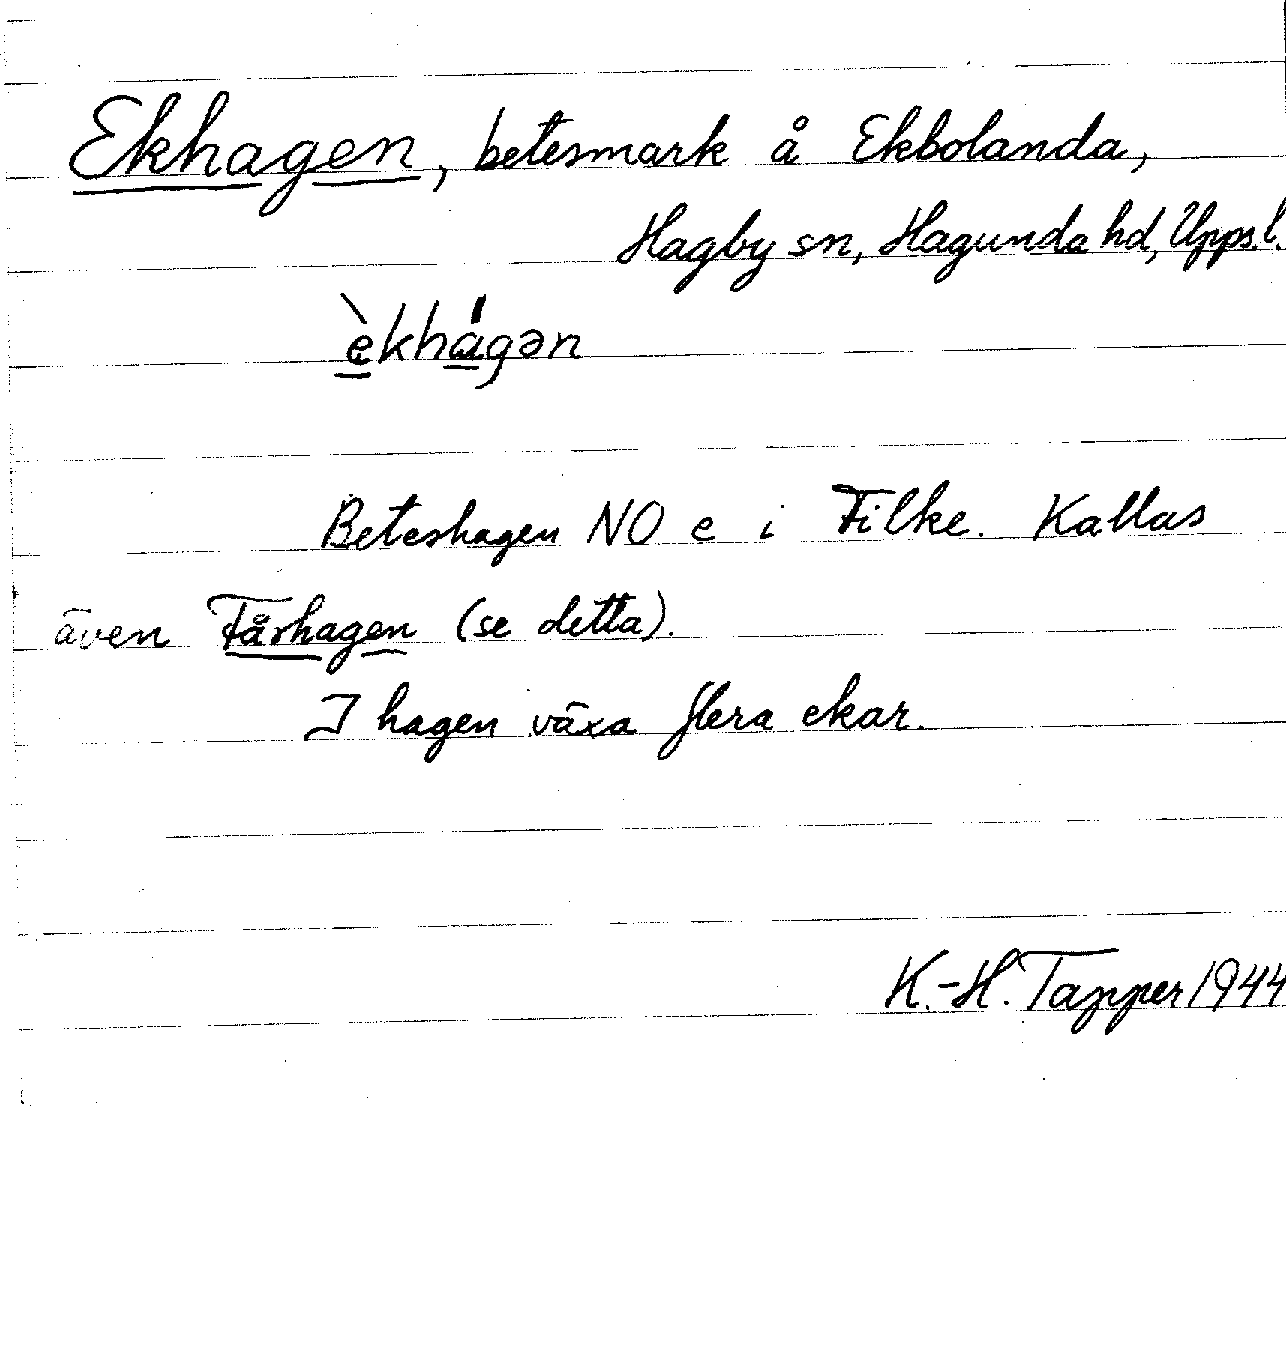 Ekhagen, betesmark å Ekbolanda,
Hagby sn, Hagunda hd, Upps. l.
èkhágən
Beteshagen NO e i Filke. Kallas
även Fårhagen (se detta).
I hagen växa flera ekar.
K.-H. Tapper 1944